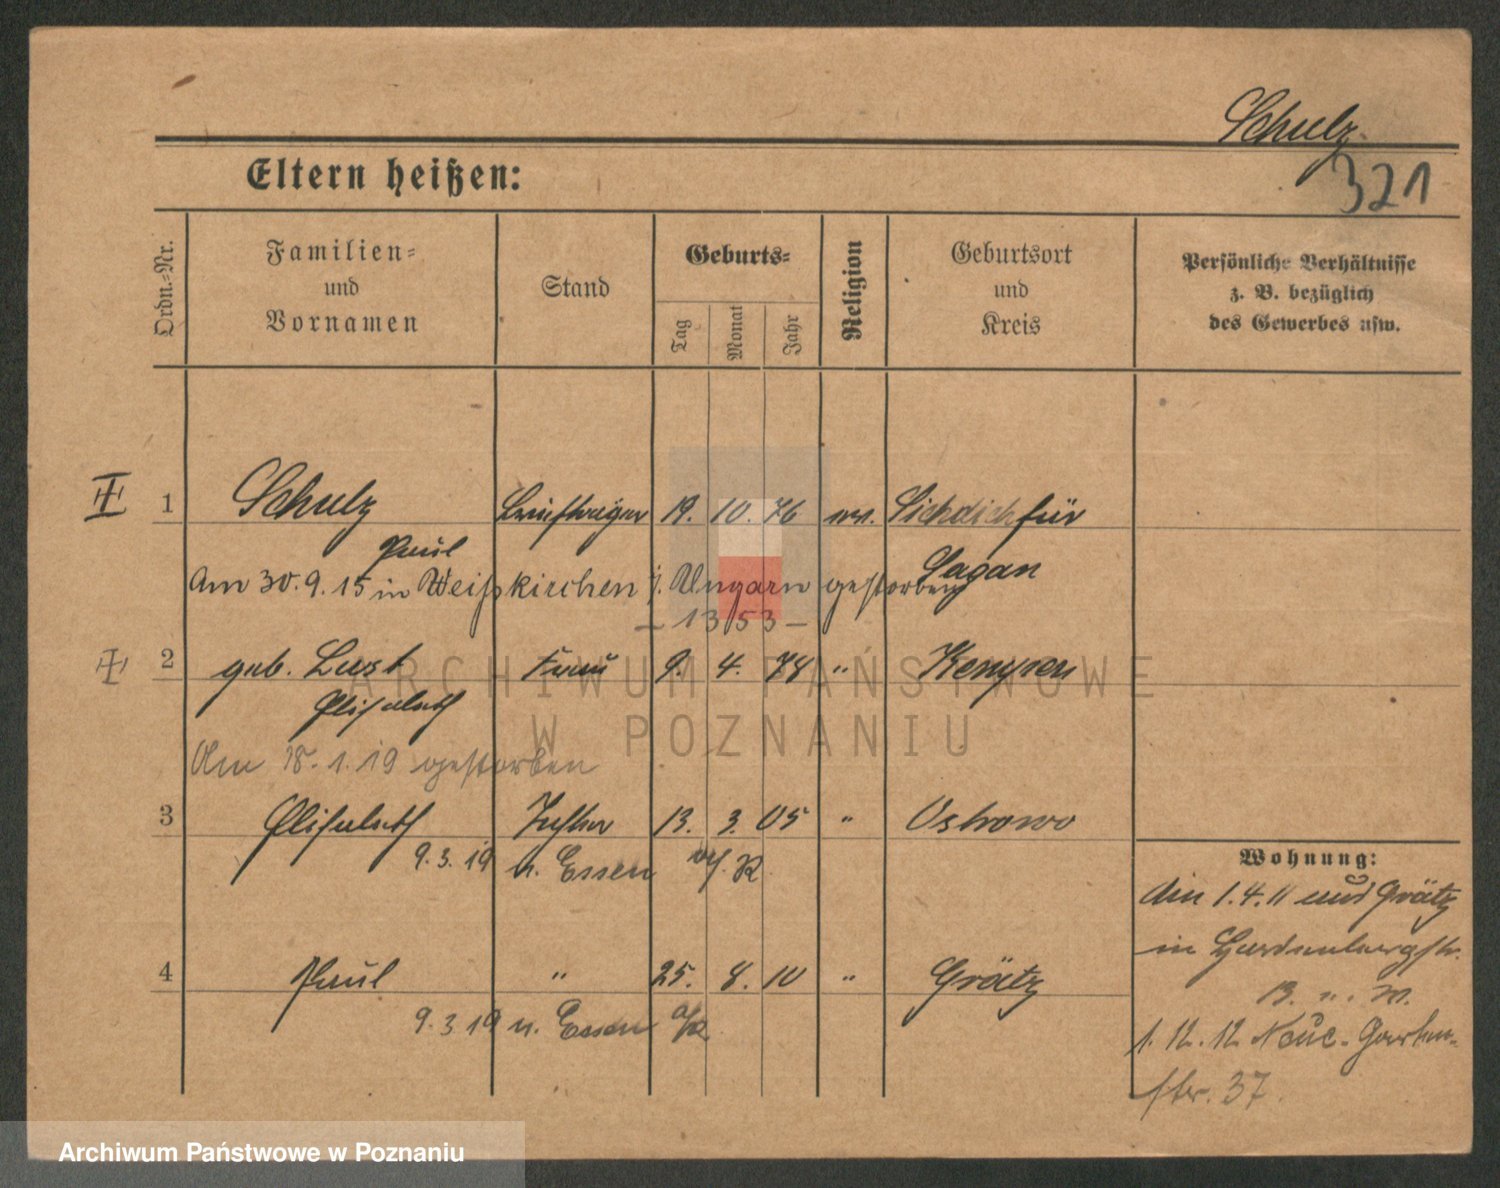 Schulz
321
Eltern heißen:
Ordn.-Nr.
Familien-
und
Vornamen
Stand
Geburts-
Tag
Monat
Jahr
Religion
Geburtsort
und
Kreis
Persönliche Verhältnisse
z. B. bezüglich
des Gewerbes usw.
1 Schulz Briefträger 19. 10. 76 ev. Sichdichfür
Paul Sagan
Am 30.9.15 in Weißkirchen i. Ungarn gestorben
– 1353 –
2 geb. Lust Frau 9. 4. 78 " Kempen
Elisabeth
ARCHIWUM PAŃSTWOWE
W POZNANIU
Am 18.1.19 gestorben
3 Elisabeth Tochter 13. 3. 05 " Ostrowo
9.3.19 n. Essen
Wohnung:
Am 1.4.11 aus Grätz
in Hardenbergstr.
4 Paul " 25. 8. 10 " Grätz
13.
9.3.19 n. Essen
1.12.12 Neue Garten-
str. 37.
Archiwum Państwowe w Poznaniu